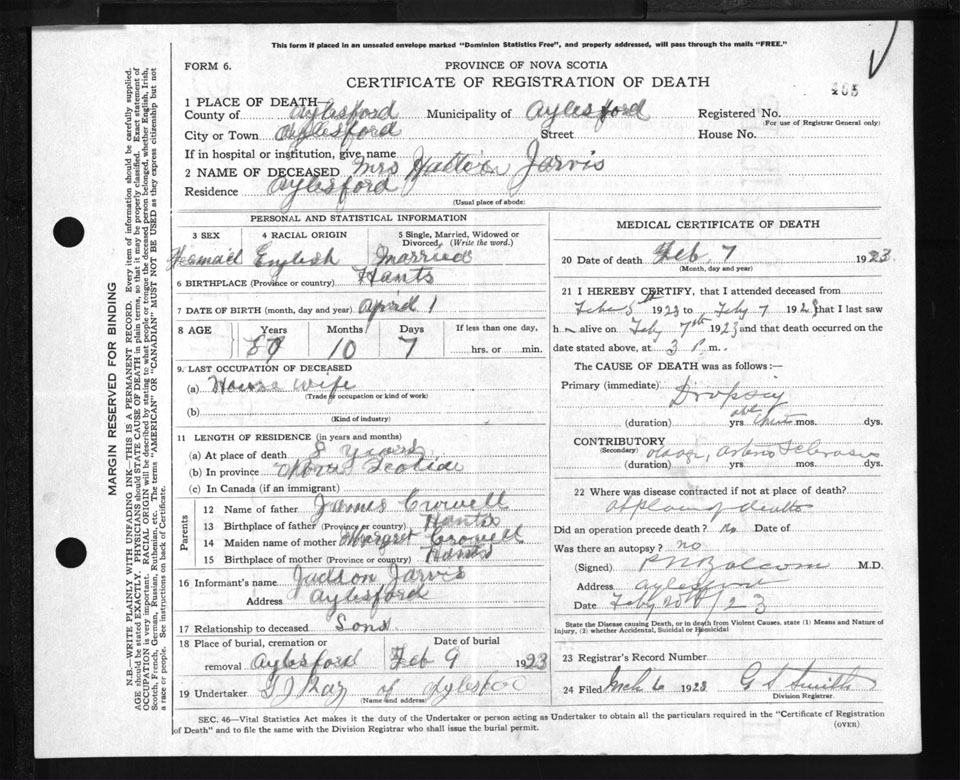 This form if placed in an unsealed envelope marked "Dominion Statistics Free", and properly addressed, will pass through the mails "FREE."
FORM 6.
PROVINCE OF NOVA SCOTIA
CERTIFICATE OF REGISTRATION OF DEATH
1 PLACE OF DEATH—
County of Aylesford Municipality of Aylesford Registered No.
(For use of Registrar General only)
City or Town Aylesford Street House No.
If in hospital or institution, give name
2 NAME OF DECEASED Mrs Jarvis
Residence Aylesford
(Usual place of abode:
PERSONAL AND STATISTICAL INFORMATION
3 SEX 4 RACIAL ORIGIN 5 Single, Married, Widowed or Divorced, (Write the word.)
English Married
6 BIRTHPLACE (Province or country) Hants
7 DATE OF BIRTH (month, day and year) 1
8 AGE Years Months Days If less than one day,
10 7 hrs. or min.
9. LAST OCCUPATION OF DECEASED
(a) House wife
(Trade or occupation or kind of work)
(b)
(Kind of industry)
11 LENGTH OF RESIDENCE (in years and months)
(a) At place of death 8 years
(b) In province Nova Scotia
(c) In Canada (if an immigrant)
Parents
12 Name of father James Crowell
13 Birthplace of father (Province or country) Hants
14 Maiden name of mother Margret Crowell
15 Birthplace of mother (Province or country) Hants
16 Informant's name Judson Jarvis
Address Aylesford
17 Relationship to deceased Sons
18 Place of burial, cremation or Date of burial
removal Aylesford Feb 9 1923
19 Undertaker of
(Name and address)
MEDICAL CERTIFICATE OF DEATH
20 Date of death Feb. 7 1923
(Month, day and year)
21 I HEREBY CERTIFY, that I attended deceased from
Feby 5th 1923 to Feby 7 1923 that I last saw
h alive on Feby 7th 1923 and that death occurred on
date stated above, at 3 P. m.
The CAUSE OF DEATH was as follows :—
Primary (immediate) Dropsy
(duration) yrs. mos. dys.
CONTRIBUTORY
(Secondary) old age,
(duration) yrs. mos. dys.
22 Where was disease contracted if not at place of death?
at place of death
Did an operation precede death? No Date of
Was there an autopsy? no
(Signed) Balcom M.D.
Address
Date Feby 20th/23
State the Disease causing Death, or in death from Violent Causes, state (1) Means and Nature of Injury, (2) whether Accidental, Suicidal or Homicidal
23 Registrar's Record Number
24 Filed Mch 6 1923 G S Smith
Division Registrar.
SEC. 46—Vital Statistics Act makes it the duty of the Undertaker or person acting as Undertaker to obtain all the particulars required in the "Certificate of Registration
of Death" and to file the same with the Division Registrar who shall issue the burial permit. (OVER)
MARGIN RESERVED FOR BINDING
N.B.—WRITE PLAINLY WITH UNFADING INK—THIS IS A PERMANENT RECORD. Every item of information should be carefully supplied.
AGE should be stated EXACTLY. PHYSICIANS should STATE CAUSE OF DEATH in plain terms, so that it may be properly classified. Exact statement of
OCCUPATION is very important. RACIAL ORIGIN will be described by stating to what people or tongue the deceased person belonged, whether English, Irish,
Scotch, French, German, Russian, Ruthenian, etc. The terms "AMERICAN" or "CANADIAN" MUST NOT BE USED as they express citizenship but not
a race or people. See instructions on back of Certificate.